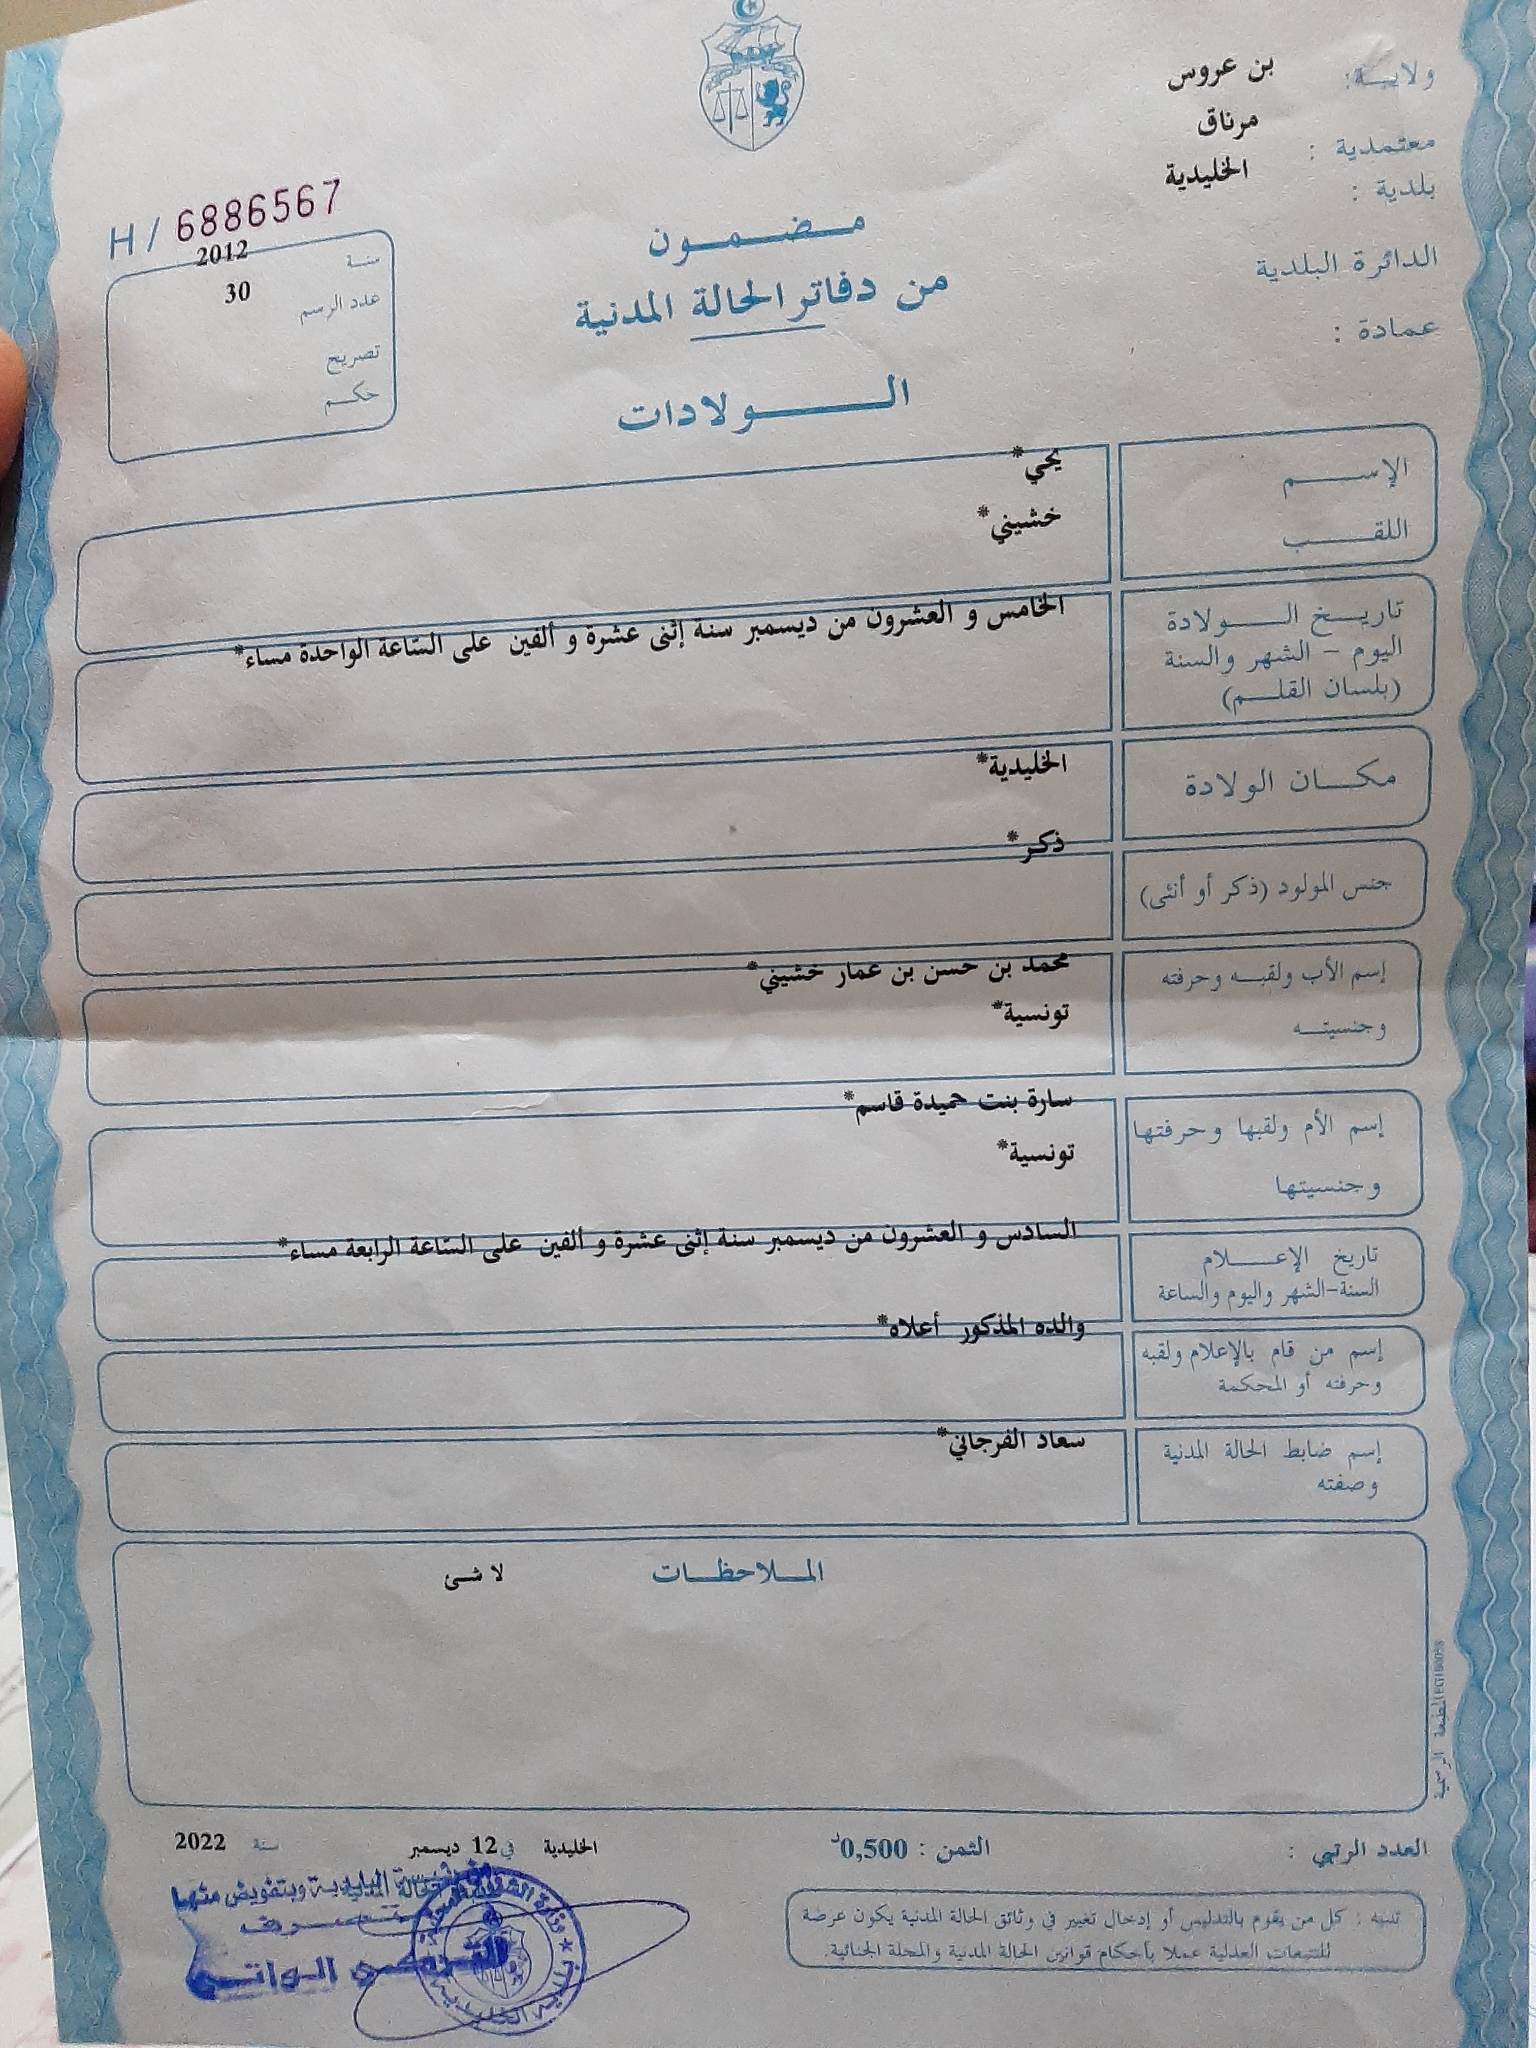 ولاية: بن عروس
معتمدية : مرناق
بلدية : الخليدية
الدائرة البلدية
عمادة :
مضمون
من دفاتر الحالة المدنية
الولادات
H / 6886567
سنة 2012
عدد الرسم 30
تصريح
حكم
الإسم يحي*
اللقب خشيني*
تاريخ الولادة
اليوم - الشهر والسنة
(بلسان القلم)
الخامس و العشرون من ديسمبر سنة إثنى عشرة و ألفين على السّاعة الواحدة مساء*
مكان الولادة الخليدية*
جنس المولود (ذكر أو أنثى) ذكر*
إسم الأب ولقبه وحرفته محمد بن حسن بن عمار خشيني*
وجنسيته تونسية*
إسم الأم ولقبها وحرفتها سارة بنت حميدة قاسم*
وجنسيتها تونسية*
تاريخ الإعلام
السنة-الشهر واليوم والساعة
السادس و العشرون من ديسمبر سنة إثنى عشرة و ألفين على السّاعة الرابعة مساء*
إسم من قام بالإعلام ولقبه
وحرفته أو المحكمة
والده المذكور أعلاه*
إسم ضابط الحالة المدنية
وصفته
سعاد الفرجاني*
الملاحظات لا شئ
المطبعة الرسمية
العدد الرتبي : الثمن : 0,500د
الخليدية في 12 ديسمبر سنة 2022
تنبيه : كل من يقوم بالتدليس أو إدخال تغيير في وثائق الحالة المدنية يكون عرضة
للتتبعات العدلية عملا بأحكام قوانين الحالة المدنية والمجلة الجنائية.
البلدية وبتفويض منها